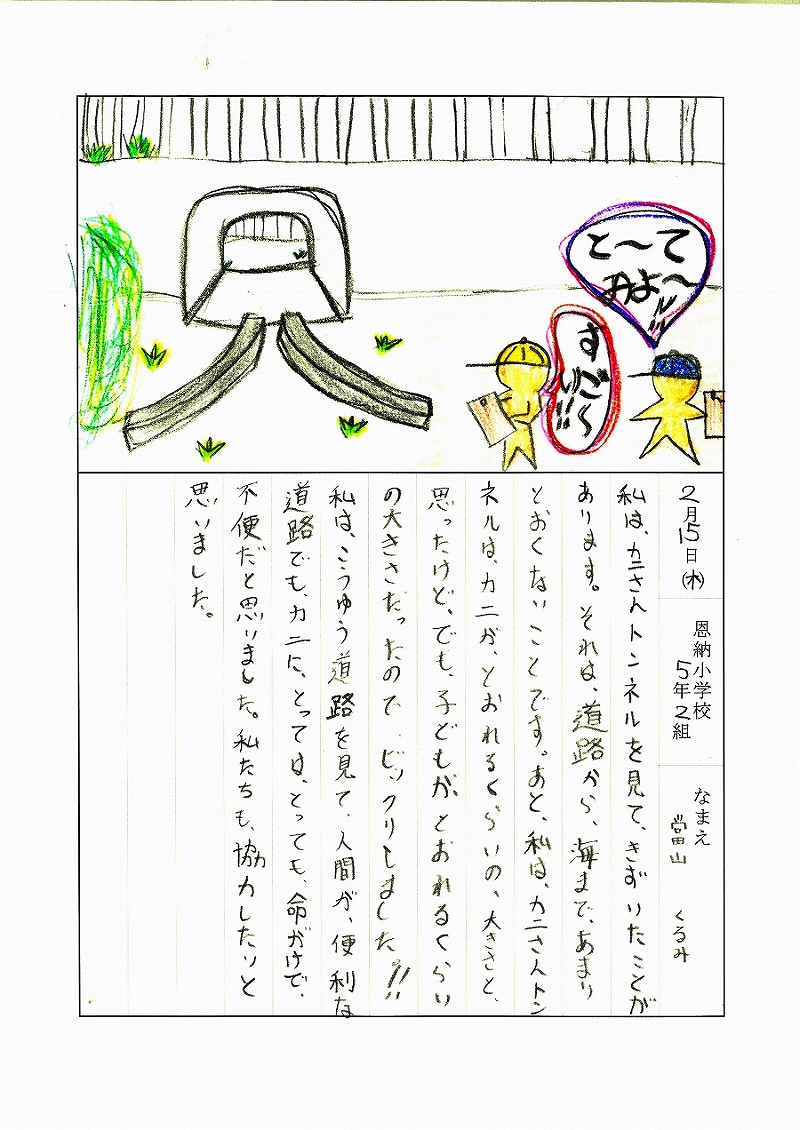 と〜て
わよ〜!!
すご〜
い!!
2月15日(木)
恩納小学校
5年2組
なまえ
當山 くるみ
私は、カニさんトンネルを見て、きずいたことが
あります。それは、道路から、海まで、あまり
とおくないことです。あと、私は、カニさんトン
ネルは、カニが、とおれるくらいの、大きさと、
思ったけど、でも、子どもが、とおれるくらい
の大きさだったので、ビックリしました。!!
私は、こうゆう道路を見て、人間が、便利な
道路でも、カニに、とっては、とっても、命がけで、
不便だと思いました。私たちも、協力したいと
思いました。